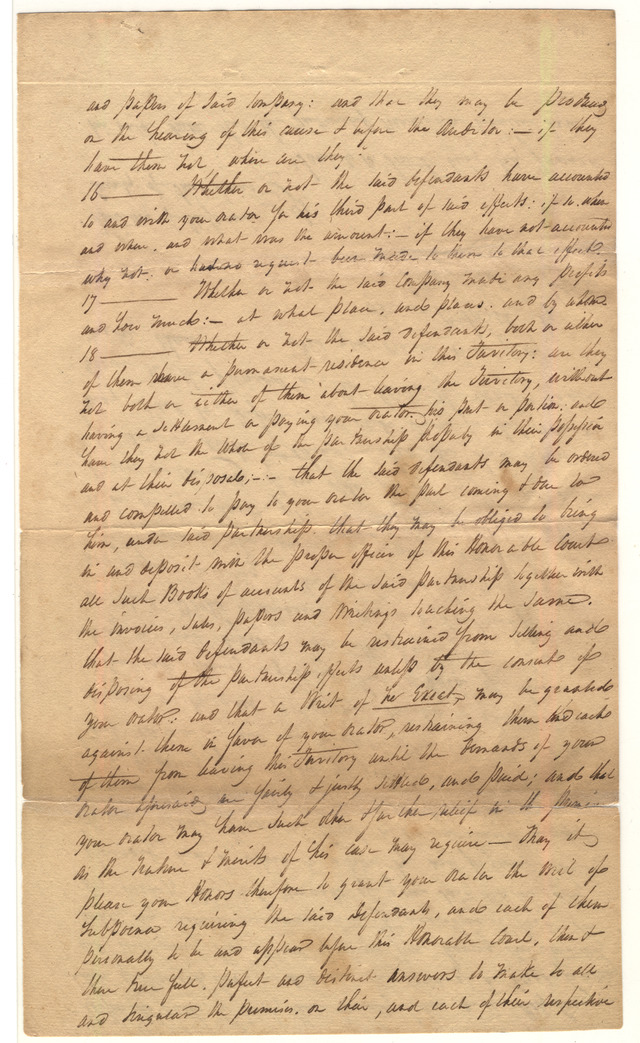 and papers of said Company: and that they may be produced
on the hearing of this cause & before the Auditor:— if they
have them not where are they?
16—— Whether or not the said defendants have accounted
to and with your orator for his third part of said effects: if so, when
and where, and what was the amount:— if they have not accounted
why not: or has no request been made to them to that effect.
17—— Whether or not the said Company made any profits
and how much:— at what place, and places. and by whom
18—— Whether or not the said defendants, both or either
of them have a permanent residence in this Territory: are they
not both or either of them about leaving the Territory, without
having a settlement or paying your orator his part or portion: and
have they not the whole of the partnership property in their possession
and at their disposal;— that the said defendants may be ordered
and compelled to pay to your orator the part coming & due to
him, under said Partnership that they may be obliged to bring
in and deposit with the proper officer of this Honorable Court
all such Books of accounts of the said partnership together with
the invoices, Sales, papers and Writings touching the same.
that the said defendants may be restrained from selling and
disposing of the partnership effects unless by the consent of
your orator: and that a Writ of Ne Exeat, may be granted
against them in favor of your orator, restraining them and each
of them from leaving this Territory until the demands of your
orator aforesaid are fairly & justly settled, and paid; and that
your orator may have such other & further relief in the
as the Nature & merits of his case may require— May it
please your Honors therefore to grant your orator the writ of
Subpoena requiring the said Defendants, and each of them
personally to be and appear before this Honorable Court, then &
there true full. perfect and distinct answers to make to all
and singular the premises. on their, and each of their respective